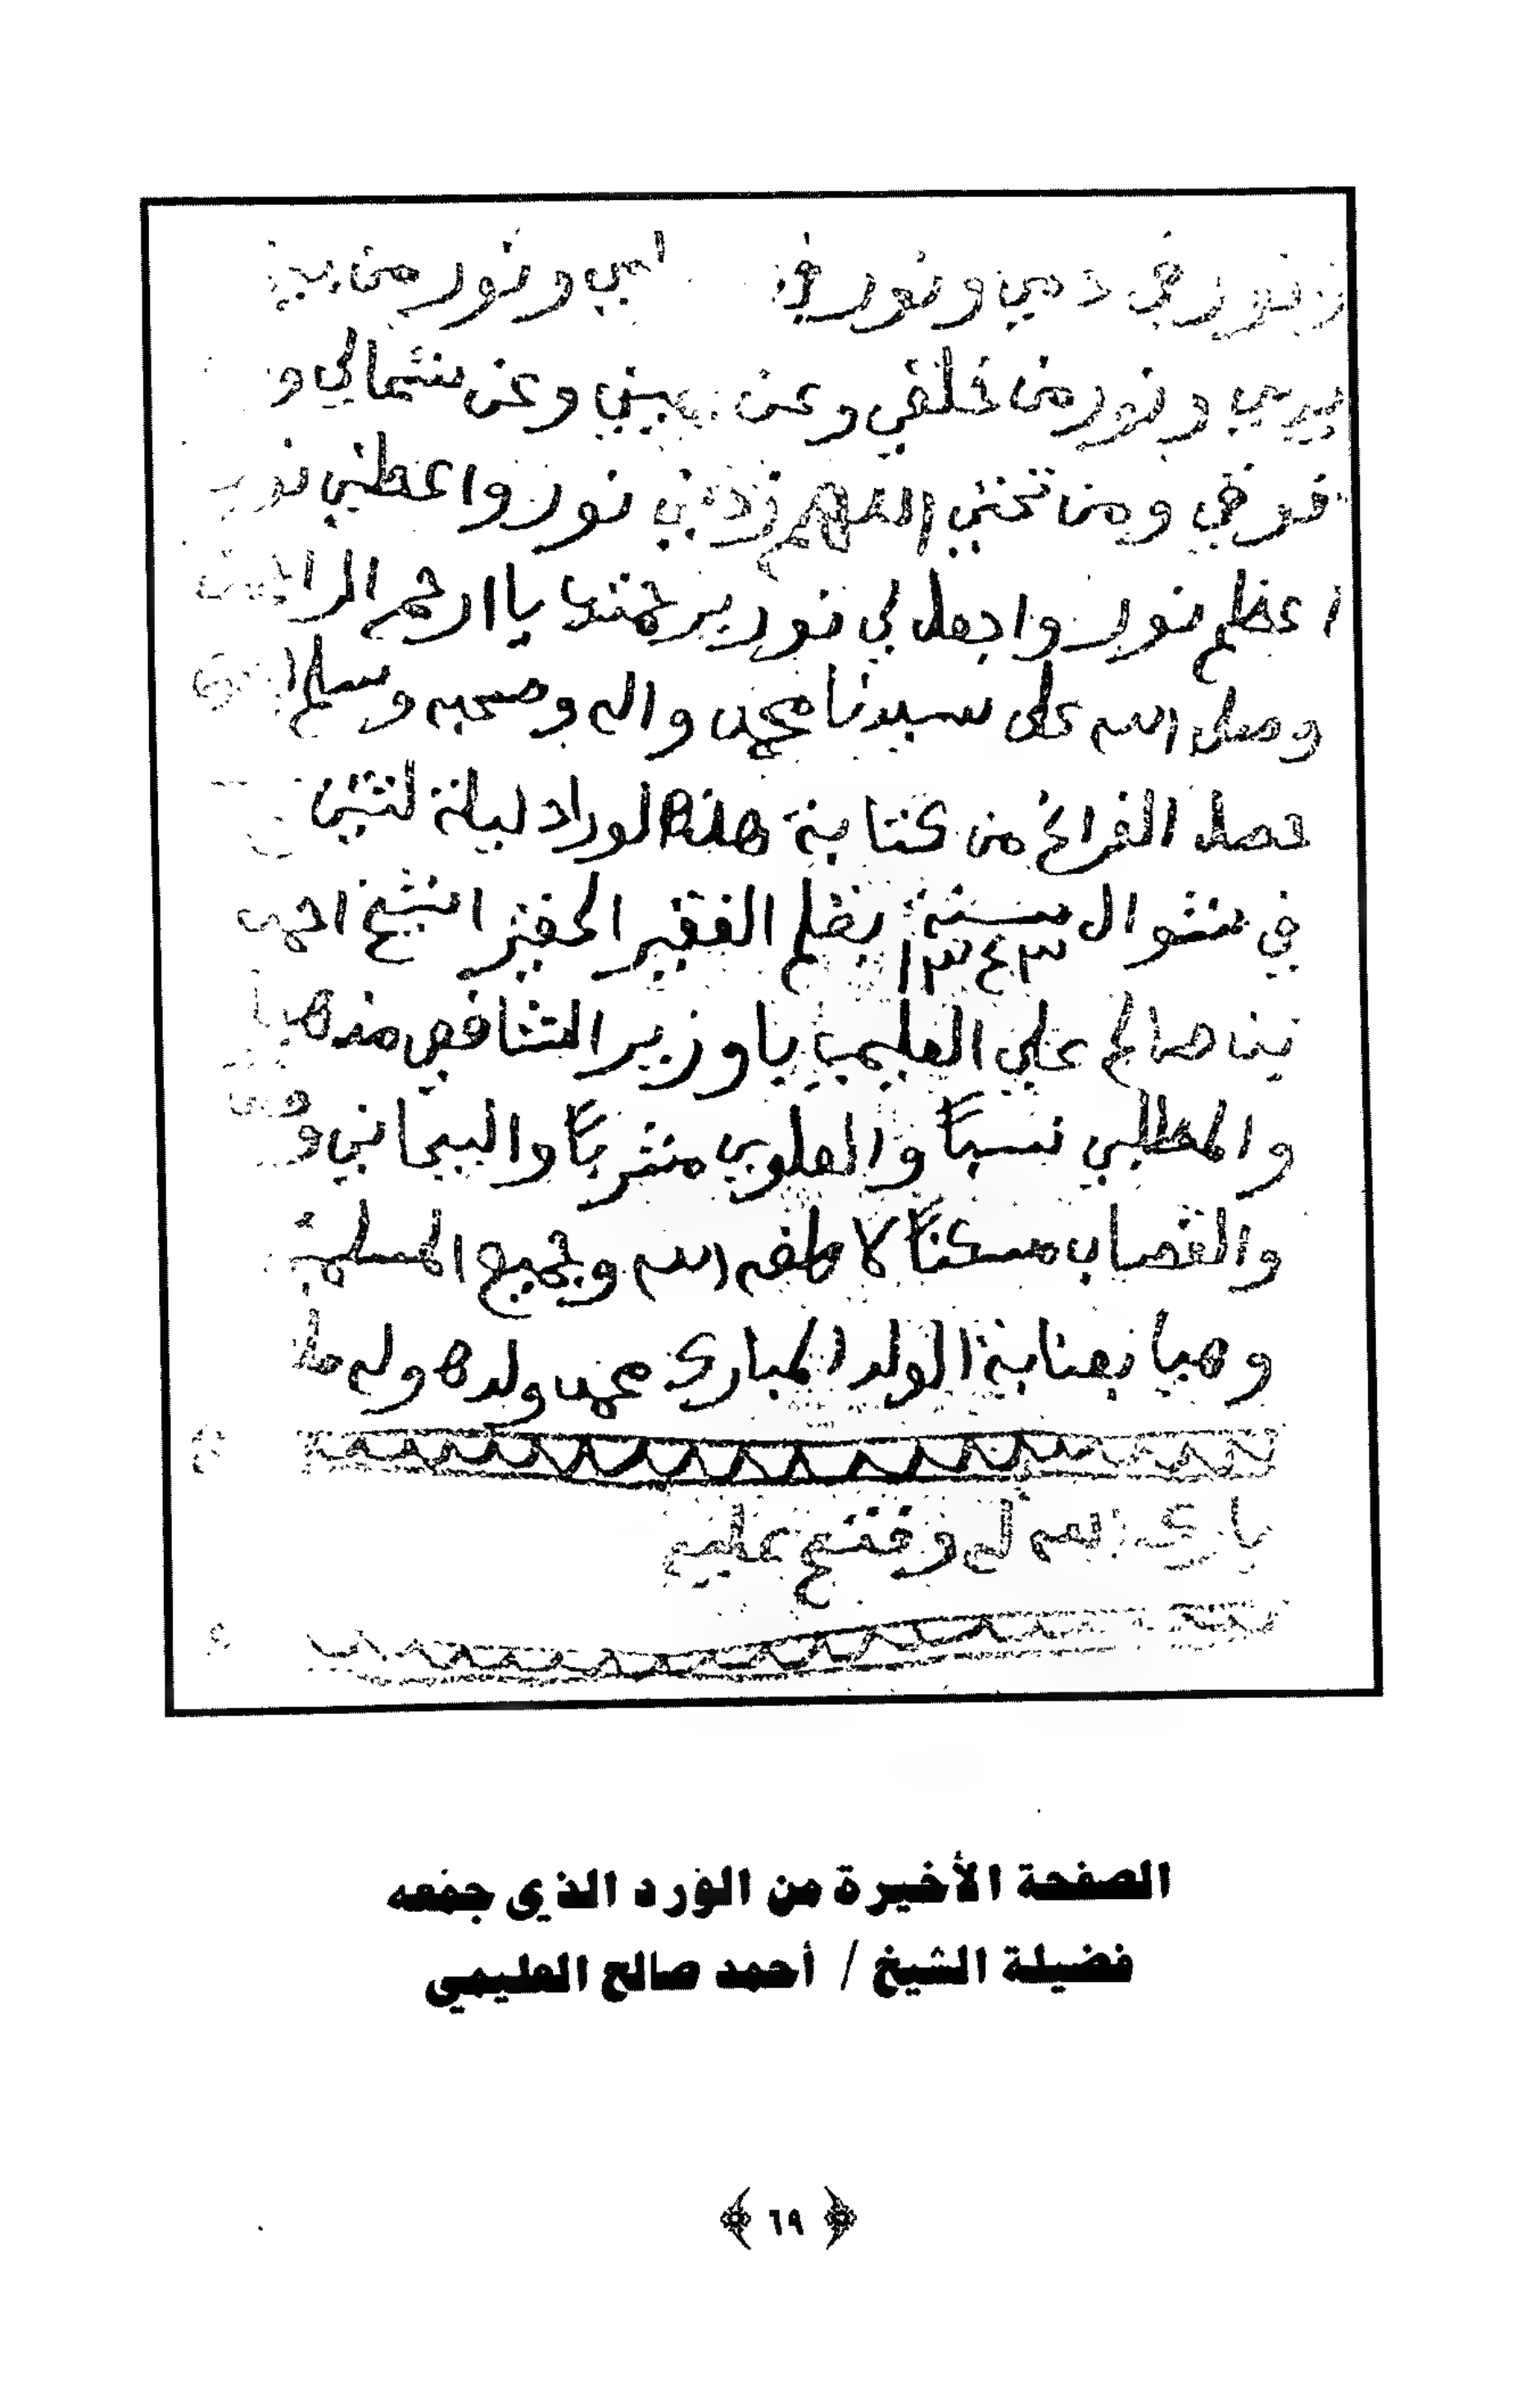 ونور في دمي ونور في امي ونور من بين
يدي ونور من خلفي وعن يميني وعن شمالي و
فوقي ومن تحتي اللهم زدني نور واعطني نور
اعظم نور واجعل لي نور برحمتك يا ارحم الراحمين
وصلى الله على سيدنا محمد واله وصحبه وسلم
حصل الفراغ من كتابة هذه الوراد ليلة لثنين
في شوال سنة ١٣٤٣ بقلم الفقير الحقير الشيخ احمد
بن صالح علي العليمي باوزير الشافعي مذهبا
والمطلبي نسباً والعلوي مشرباً والبيحاني و
والقصاب مسكناً لاطفه الله وبجميع المسلمين
وهيا بعناية الولد المبارك محمد ولده وله
بارك الله له وفتح عليه
الصفحة الأخيرة من الورد الذي جمعه
فضيلة الشيخ / أحمد صالح العليمي
٦٩